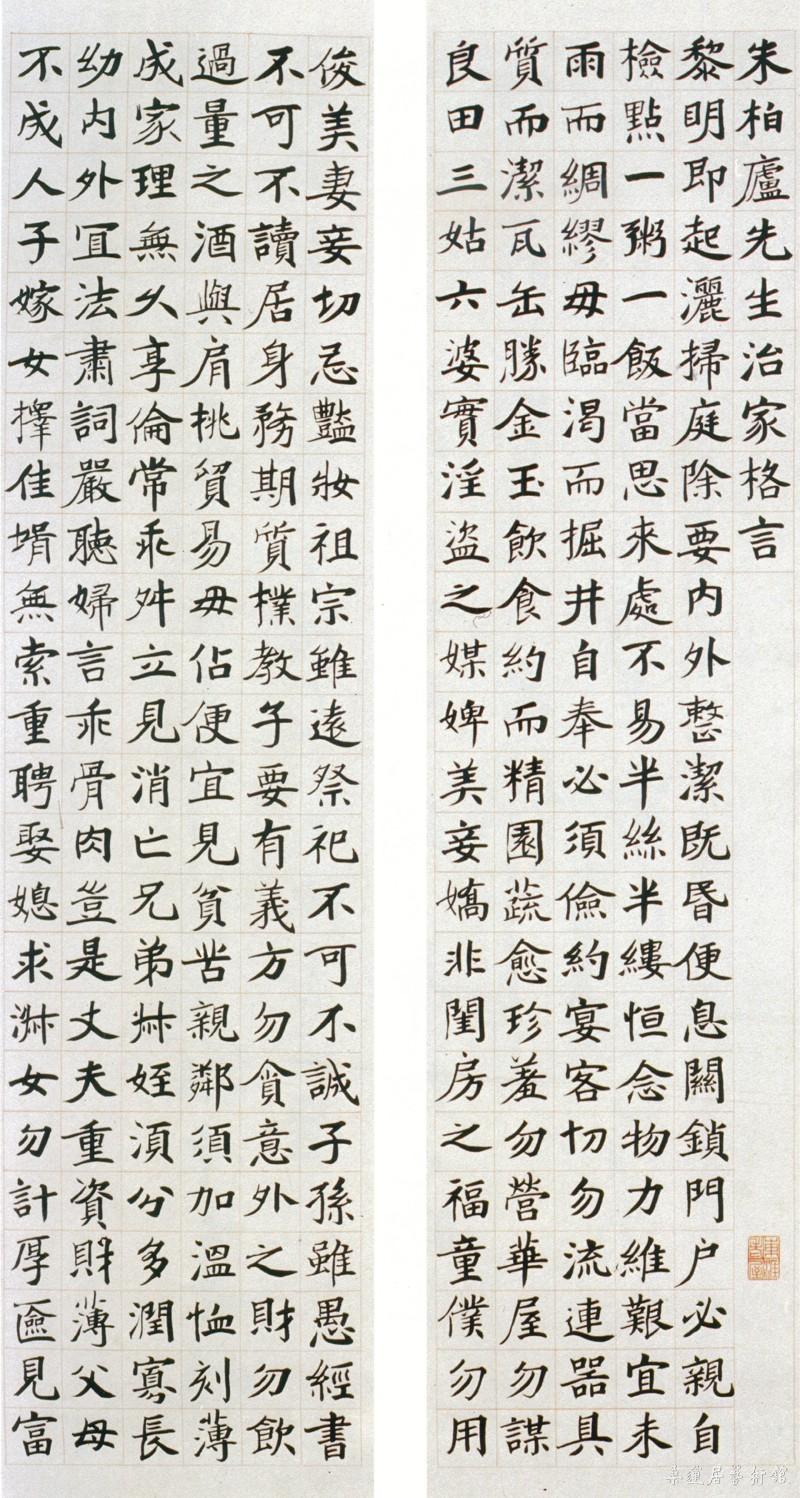 朱柏廬先生治家格言
黎明即起灑掃庭除要内外整潔既昬便息關鎖門户必親自
檢點一粥一飯當思來處不易半絲半縷恒念物力維艱宜未
雨而綢繆毋臨渴而掘井自奉必須儉約宴客切勿流連器具
質而潔瓦缶勝金玉飲食約而精園蔬愈珍羞勿營華屋勿謀
良田三姑六婆實淫盜之媒婢美妾嬌非閨房之福童僕勿用
俊美妻妾切忌豔妝祖宗雖遠祭祀不可不誠子孫雖愚經書
不可不讀居身務期質樸教子要有義方勿貪意外之財勿飲
過量之酒與肩挑貿易毋佔便宜見貧苦親鄰須加溫恤刻薄
成家理無久享倫常乖舛立見消亡兄弟叔姪須分多潤寡長
幼内外宜法肅詞嚴聽婦言乖骨肉豈是丈夫重資財薄父母
不成人子嫁女擇佳壻無索重聘娶媳求淑女勿計厚奩見富